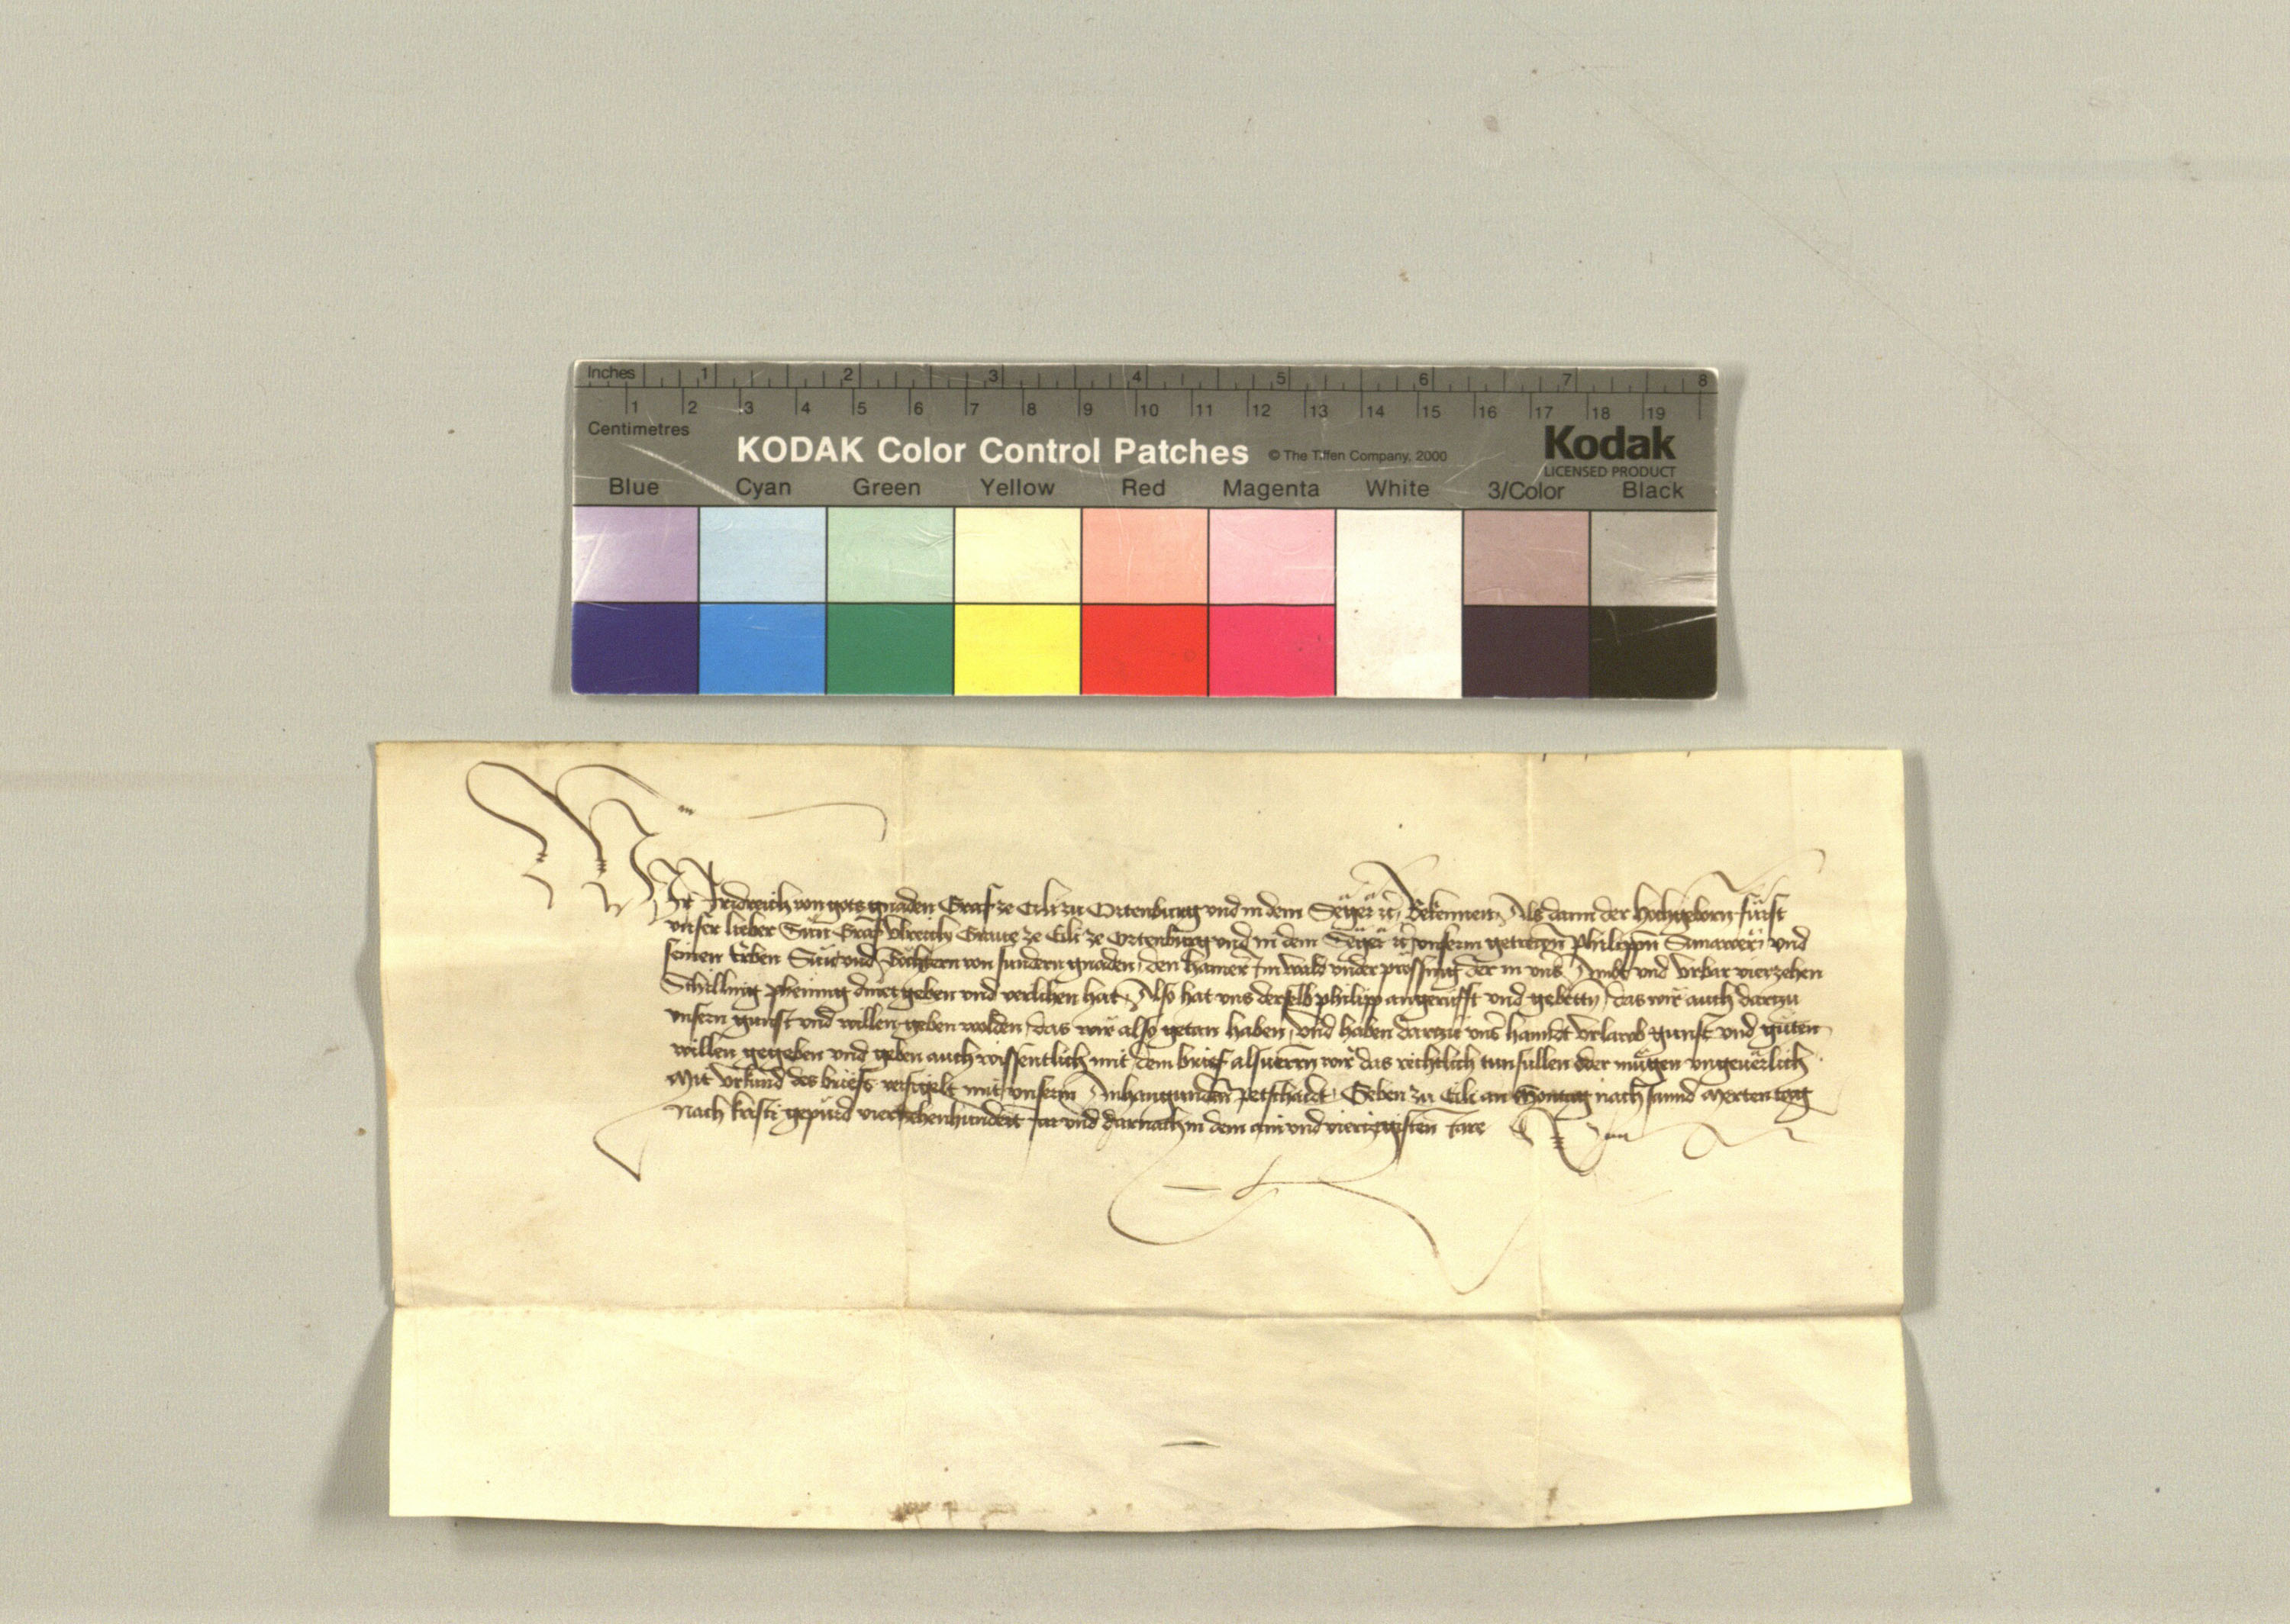 Inches 1 2 3 4 5 6 7 8
1 2 3 4 5 6 7 8 9 10 11 12 13 14 15 16 17 18 19
Centimetres
KODAK Color Control Patches © The Tiffen Company, 2000 Kodak
LICENSED PRODUCT
Blue Cyan Green Yellow Red Magenta White 3/Color Black
Wir Fridreich von gots gnaden Graf ze Cili zu Ortenburg und in dem Seger etc Bekennen Als dann der hochgeborn fürst
unser lieber Sun Graf Ulreich Graue ze Cili ze Ortenburg und in dem Seger etc unserm getrewn Philippn und
seinen erben Sün und Töchtern von sundern gnaden den hamer Im wald under prössnig der in uns Ambt und Urbar vierzehen
Schilling phening dint geben und verlihen hat Also hat uns derselb philipp angerüfft und gebettn das wir auch darzu
unsern gunst und willen geben wolden das wir also getan haben und haben darzu uns handt Urlawb gunst und guten
willen gegeben und geben auch wissentlich mit dem brief alsuerrn wir das rechtlich tun sullen oder mügen ungeuerlich
Mit Urkund des briefs versigelt mit unserm Anhangunden Petschadt Geben zu Cili an Montag nach sannd Merten tag
Nach kristi gepurd vierzehenhundert Jar und darnach in dem ain und vierzigisten Jare